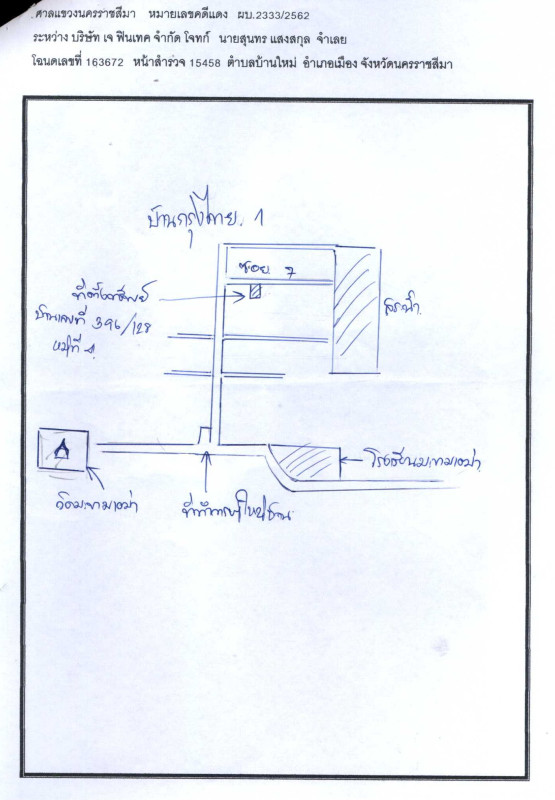 ศาลแขวงนครราชสีมา หมายเลขคดีแดง ผบ.2333/2562
ระหว่าง บริษัท เจ ฟินเทค จำกัด โจทก์ นายสุนทร แสงสกุล จำเลย
โฉนดเลขที่ 163672 หน้าสำรวจ 15458 ตำบลบ้านใหม่ อำเภอเมือง จังหวัดนครราชสีมา
บ้านกรุงไทย 1
ซอย 7
ที่ตั้งทรัพย์
บ้านเลขที่ 396/128
หมู่ที่ 4
สระน้ำ
โรงเรียนมะขามเฒ่า
วัดมะขามเฒ่า
ที่ทำการผู้ใหญ่บ้าน